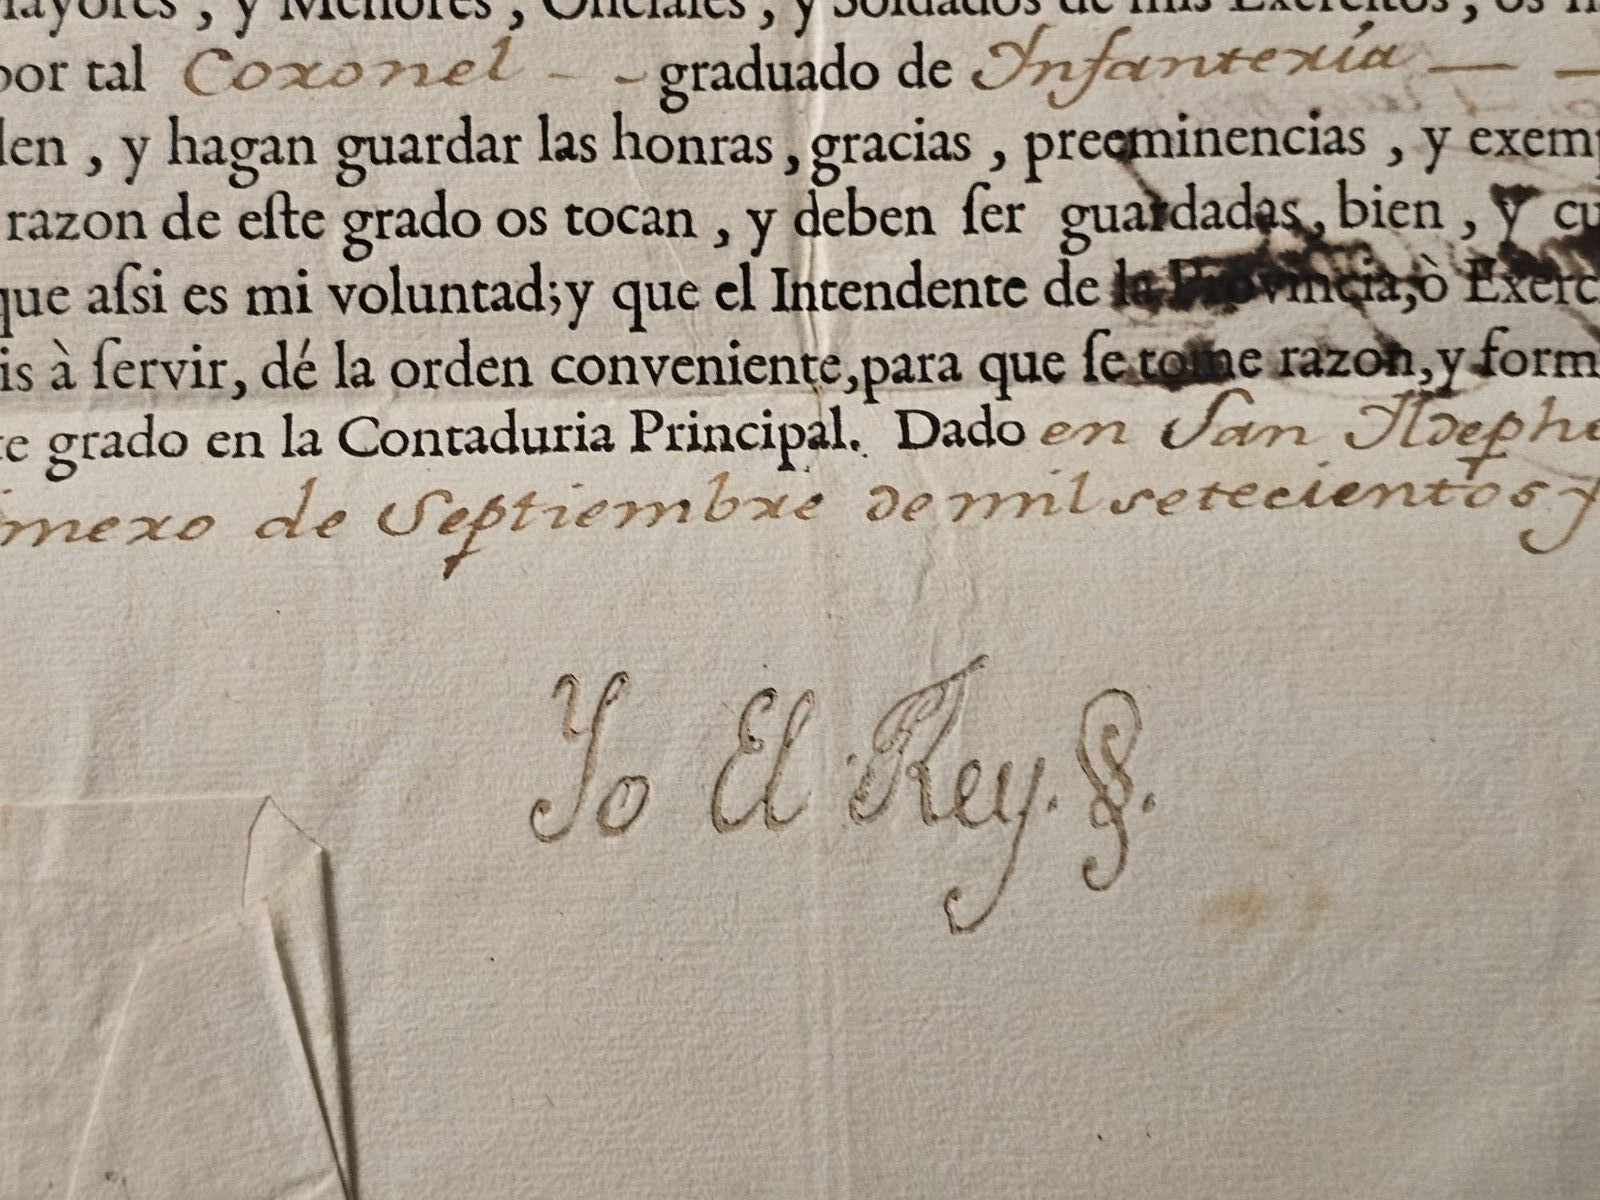 Mayores, y Menores, Oficiales, y Soldados de mis Exercitos, os
por tal Coronel - - graduado de Infanteria — —
den, y hagan guardar las honras, gracias, preeminencias, y exemp
razon de eſte grado os tocan, y deben ſer guardadas, bien, y cu
que aſsi es mi voluntad; y que el Intendente de la Provincia, ò Exerc
is à ſervir, dé la orden conveniente, para que ſe tome razon, y form
te grado en la Contaduria Principal. Dado en San Ildepho
imero de Septiembre de mil setecientos y
Yo El Rey.